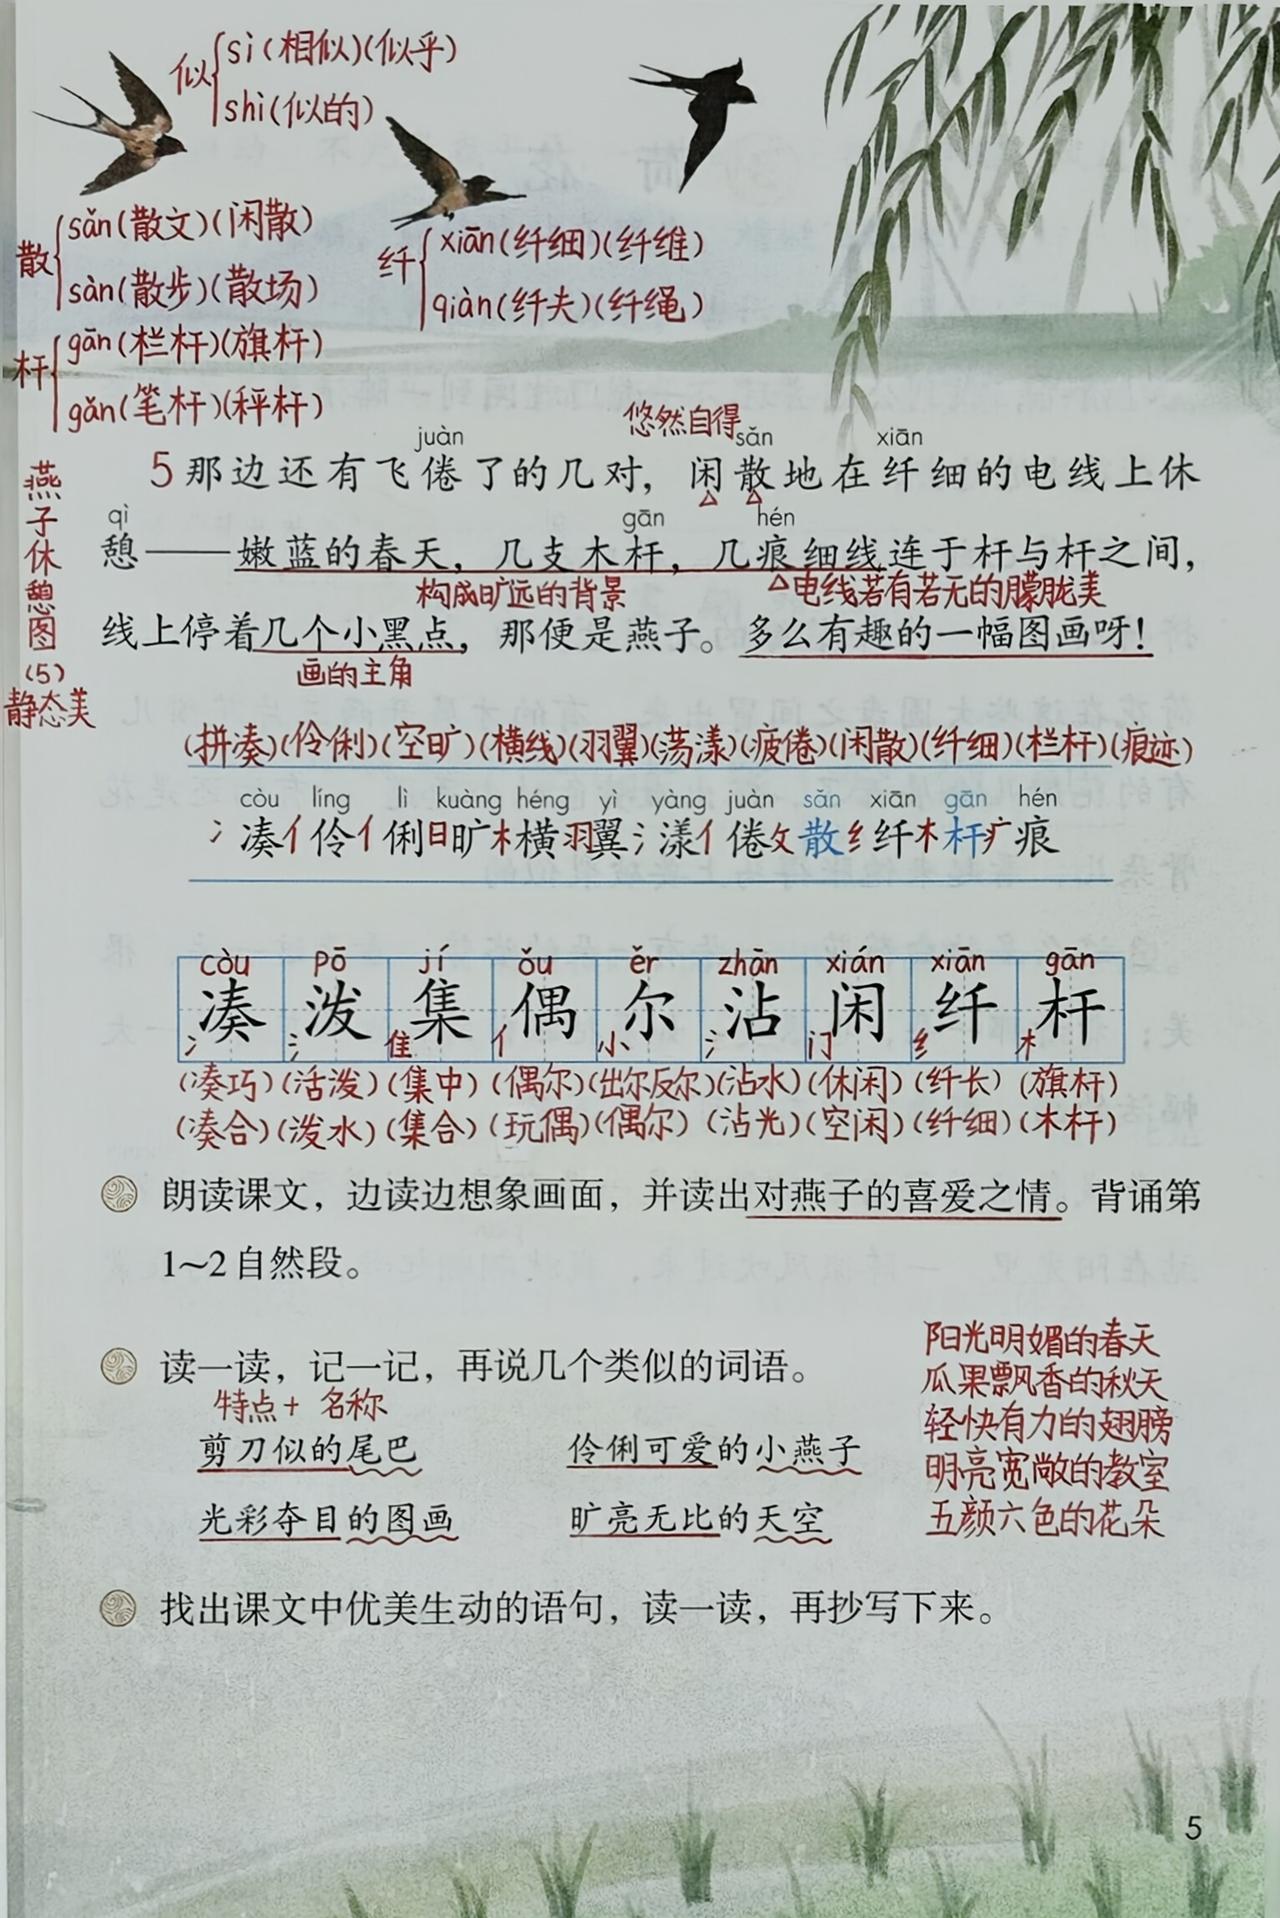 似 sì(相似)(似乎)
shì(似的)
散 sǎn(散文)(闲散)
sàn(散步)(散场)
纤 xiān(纤细)(纤维)
qiàn(纤夫)(纤绳)
杆 gān(栏杆)(旗杆)
gǎn(笔杆)(秤杆)
悠然自得
juàn sǎn xiān
5那边还有飞倦了的几对，闲散地在纤细的电线上休
qì gān hén
憩——嫩蓝的春天，几支木杆，几痕细线连于杆与杆之间，
构成旷远的背景 电线若有若无的朦胧美
线上停着几个小黑点，那便是燕子。多么有趣的一幅图画呀！
画的主角
燕子休憩图
(5)
静态美
(拼凑)(伶俐)(空旷)(横线)(羽翼)(荡漾)(疲倦)(闲散)(纤细)(栏杆)(痕迹)
còu líng lì kuàng héng yì yàng juàn sǎn xiān gān hén
冫凑亻伶亻俐日旷木横羽翼氵漾亻倦攵散纟纤木杆疒痕
còu pō jí ǒu ěr zhān xián xiān gān
凑 泼 集 偶 尔 沾 闲 纤 杆
冫 氵 隹 亻 小 氵 门 纟 木
(凑巧)(活泼)(集中)(偶尔)(出尔反尔)(沾水)(休闲)(纤长)(旗杆)
(凑合)(泼水)(集合)(玩偶)(偶尔)(沾光)(空闲)(纤细)(木杆)
朗读课文，边读边想象画面，并读出对燕子的喜爱之情。背诵第
1～2自然段。
读一读，记一记，再说几个类似的词语。
特点+名称
剪刀似的尾巴 伶俐可爱的小燕子
光彩夺目的图画 旷亮无比的天空
阳光明媚的春天
瓜果飘香的秋天
轻快有力的翅膀
明亮宽敞的教室
五颜六色的花朵
找出课文中优美生动的语句，读一读，再抄写下来。
5